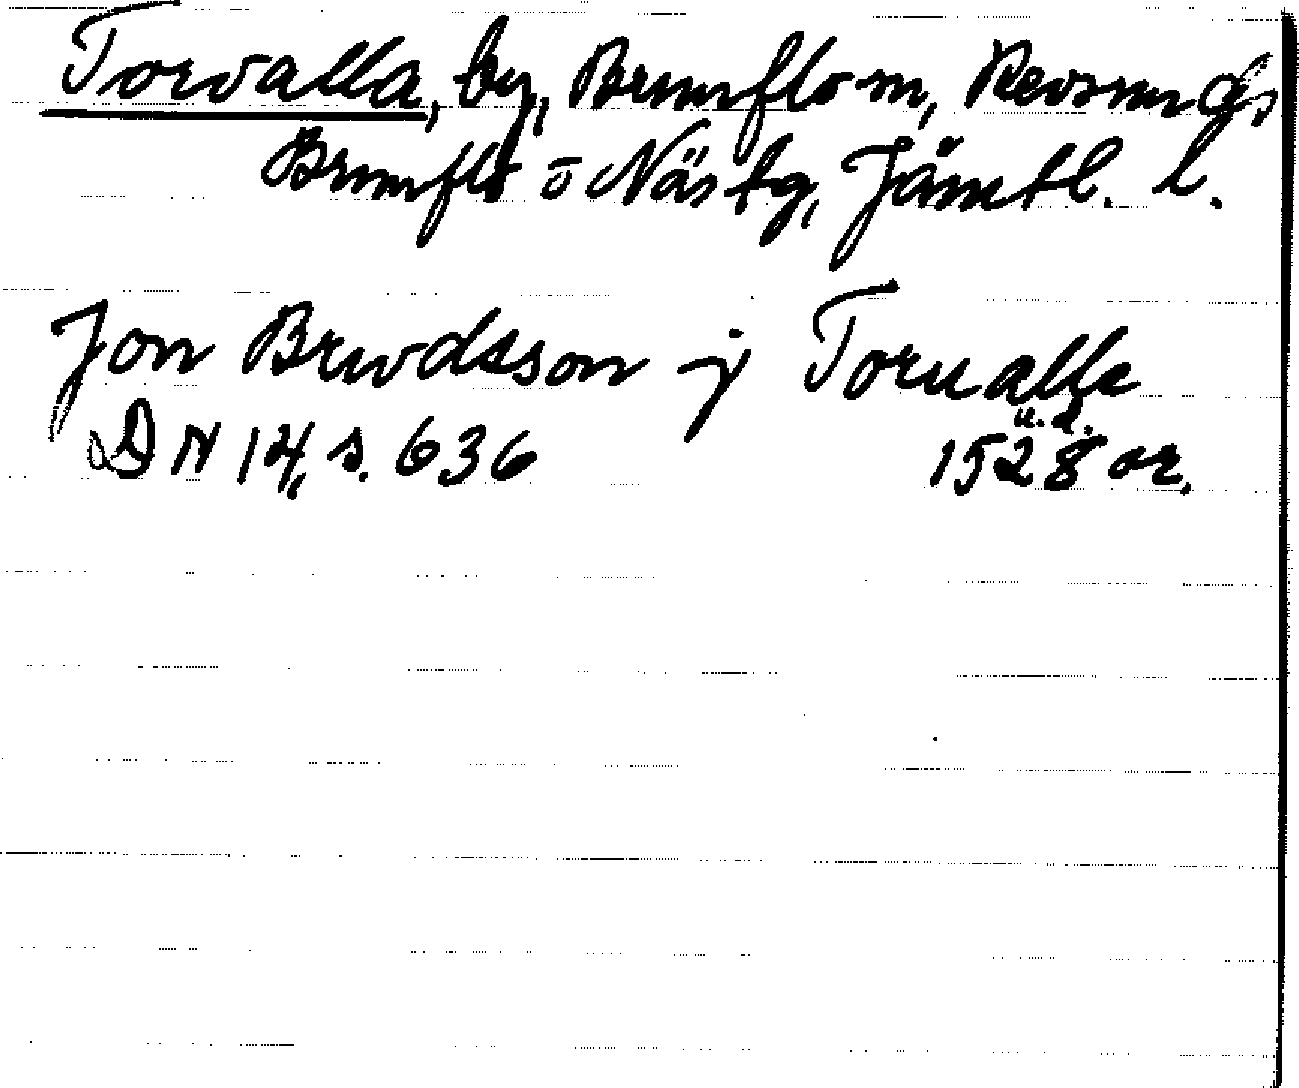 Torvalla, by, Brunflo sn, Revsunds
Brunflo o Näs tg, Jämtl. l.
Jon Brwdsson j Torualla
u.d.
DN 14, s. 636 1528 or.